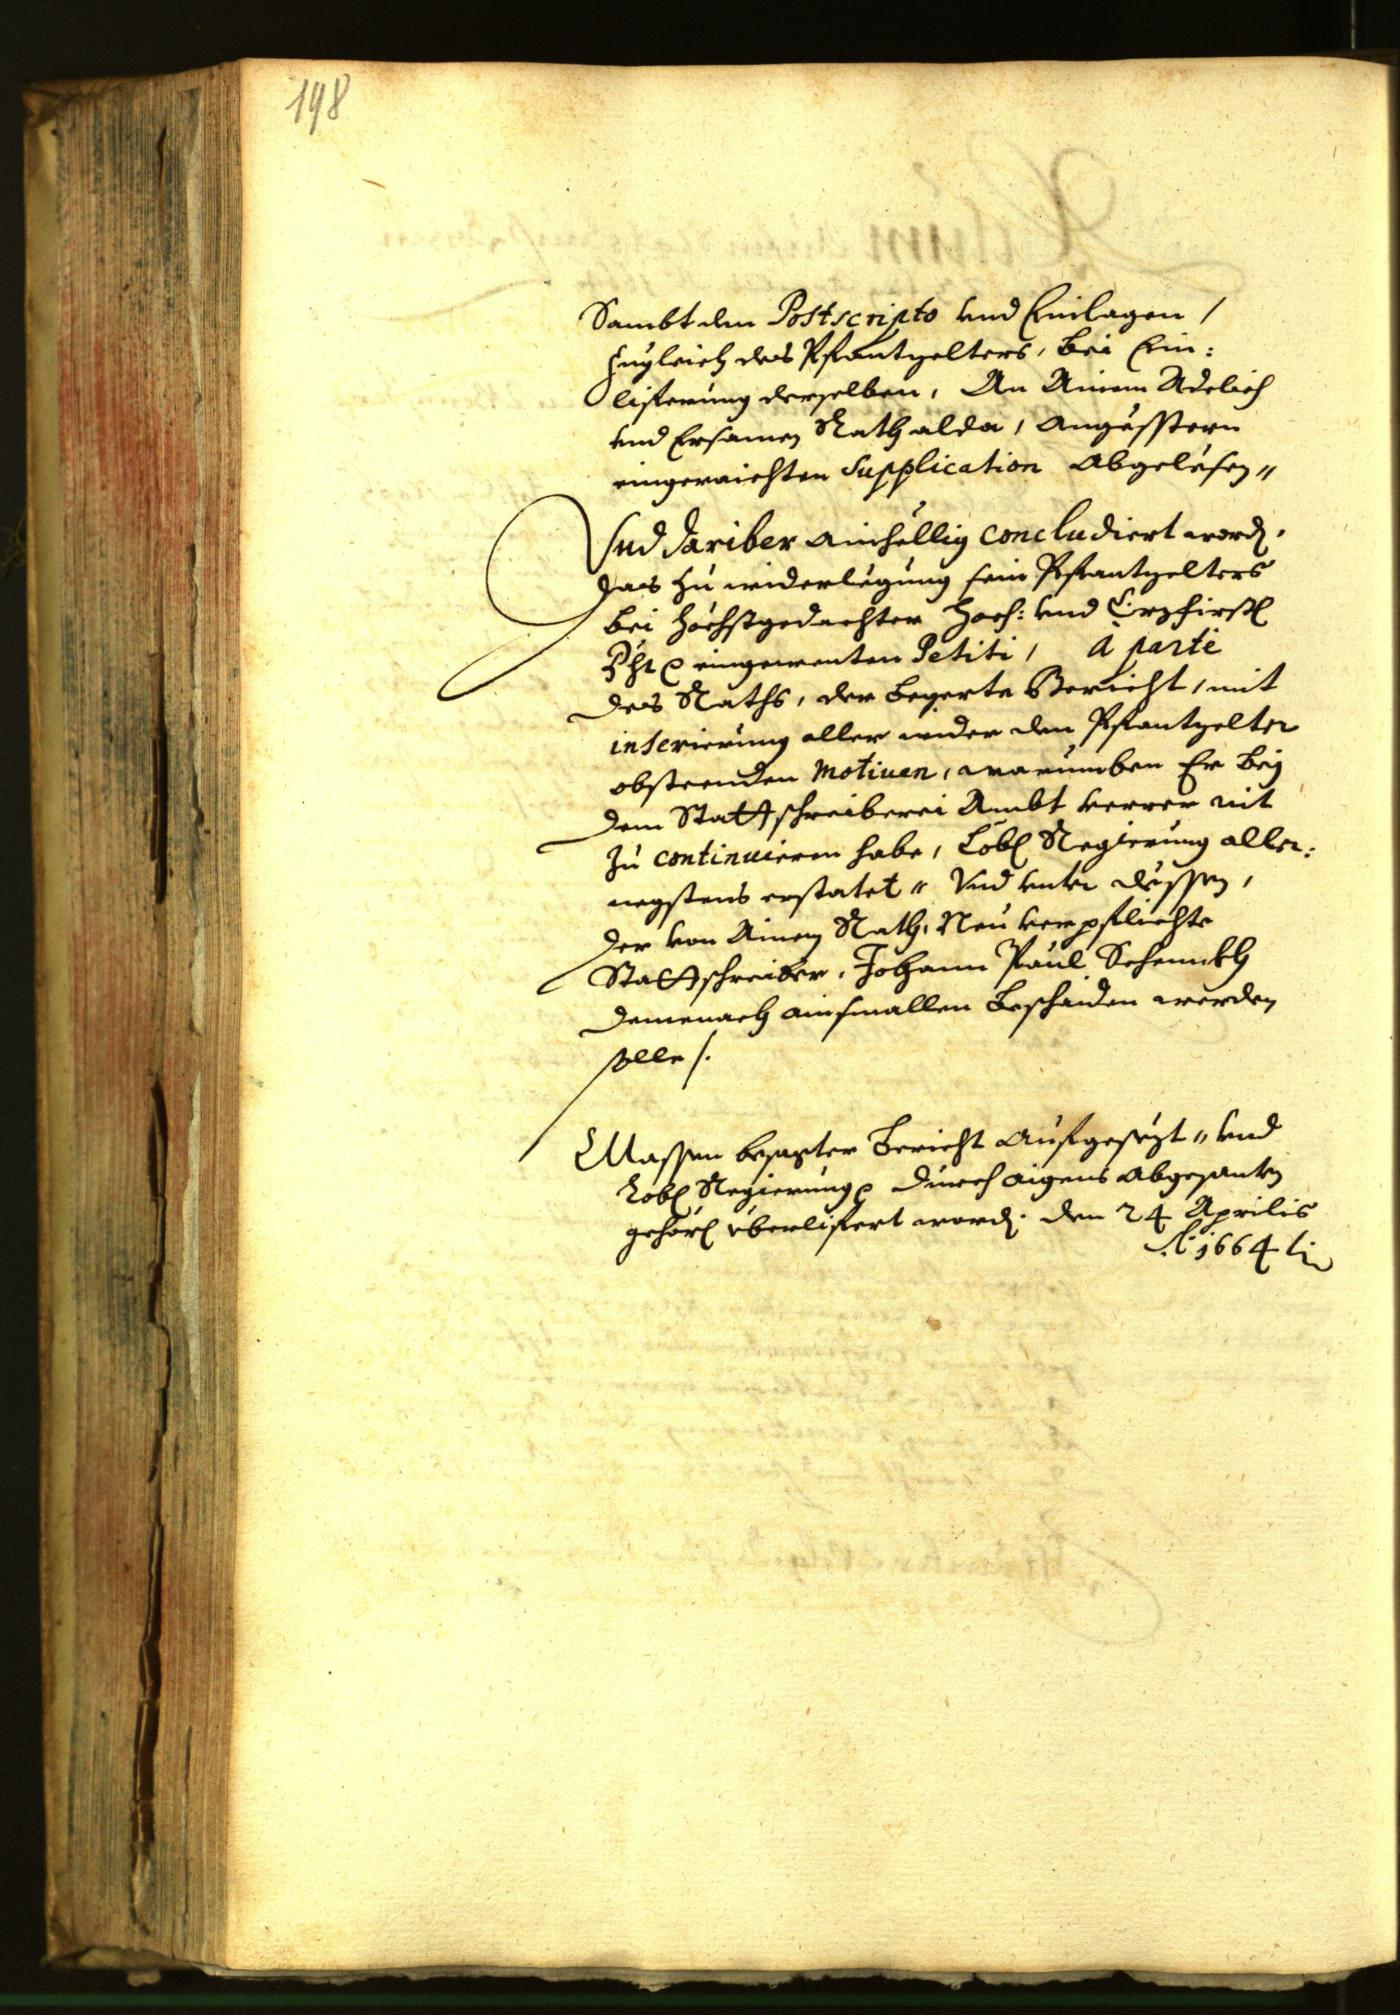 198
Sambt den Postscripto vnd Einlagen /
zugleich des Pfantzelters, bei Ein:
liferung derselben, An Ainem Adelich
vnd Ersamen Rath alda / angestern
eingeraichten Supplication abgelesen "
Vnd dariber ainhellig concludiert word.
das zu widerlegung sein Pfantzelters
bei höchstgedachter Hoch: vnd Erzfirstl
Dht eingewenten Petiti / a parte
des Raths, der begerte Bericht / mit
inserierung aller wider den Pfantzelter
obsteenden Motiuen, warumben Er bey
dem Stattschreiberei Ambt verrer nit
zu continuieren habe, Löbl Regierung aller:
negstens erstatet " Vnd vnter dessen,
der von Ainem Rath, Neu verpflichte
Stattschreiber, Johann Paul Schenckh
demenach ainsmallen beschaiden werden
solle /.
Massen besagter Bericht aufgesezt " vnd
Löbl Regierung durch aigens abgesanten
gehörl yberlifert word. den 24 Aprilis
Ao 1664